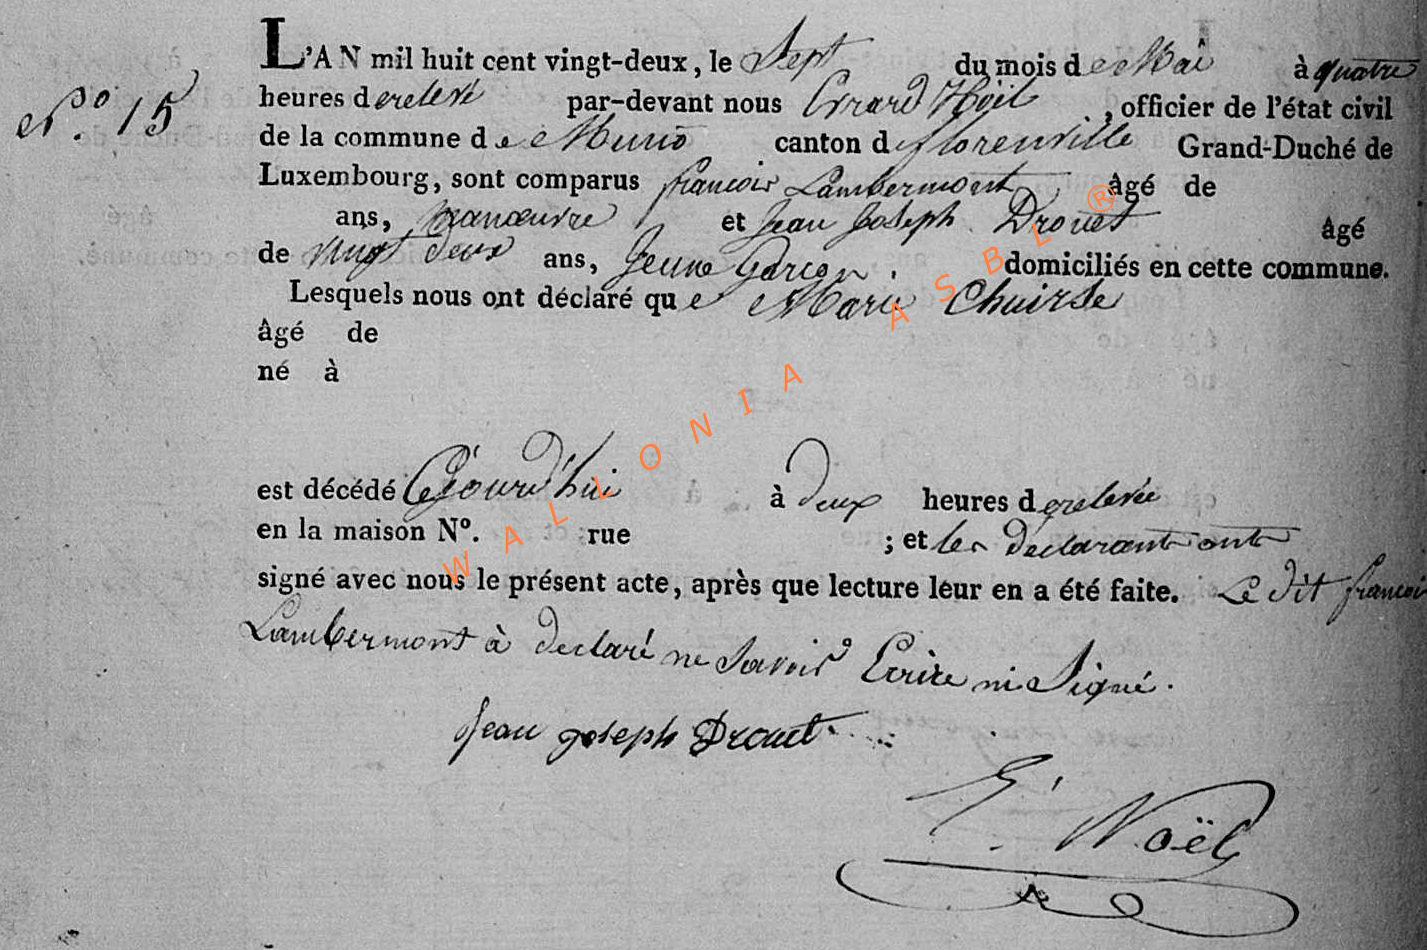 L'AN mil huit cent vingt-deux, le Sept du mois de Mai à quatre
N.° 15
heures de relevé par-devant nous Errard Noël, officier de l'état civil
de la commune de Muno canton de florenville Grand-Duché de
Luxembourg, sont comparus francois Lambermont âgé de
ans, manœuvre et Jean Joseph Drouet âgé
de vingt deux ans, Jeune Garçon domiciliés en cette commune.
Lesquels nous ont déclaré que Marie
âgé de
né à
est décédé Cejourd'hui à deux heures de relevée
en la maison N°. rue ; et les déclarant ont
signé avec nous le présent acte, après que lecture leur en a été faite. Le dit francois
Lambermont à declaré ne Savoir Ecrire ni Signé.
Jean joseph Drouet
E. Noël
WALLONIA ASBL®